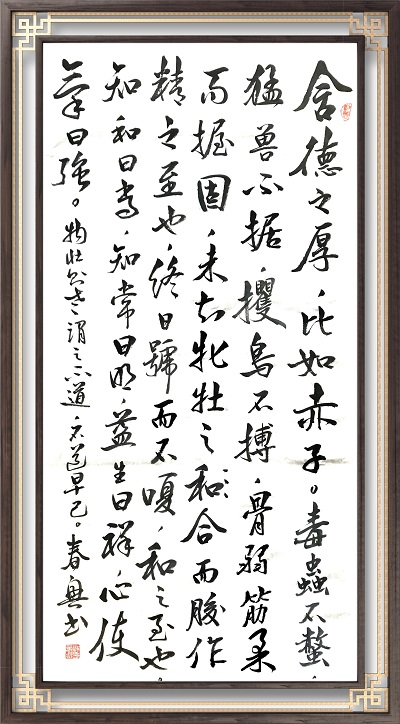 含德之厚，比如赤子。毒蟲不螫，
猛兽不据，攫鳥不搏，骨弱筋柔
而握固，未知牝牡之和合而朘作
精之至也，终日號而不嗄，和之至也。
知和曰常，知常曰明，益生曰祥，心使
氣曰强。物壯則老，謂之不道，不道早已。春興书